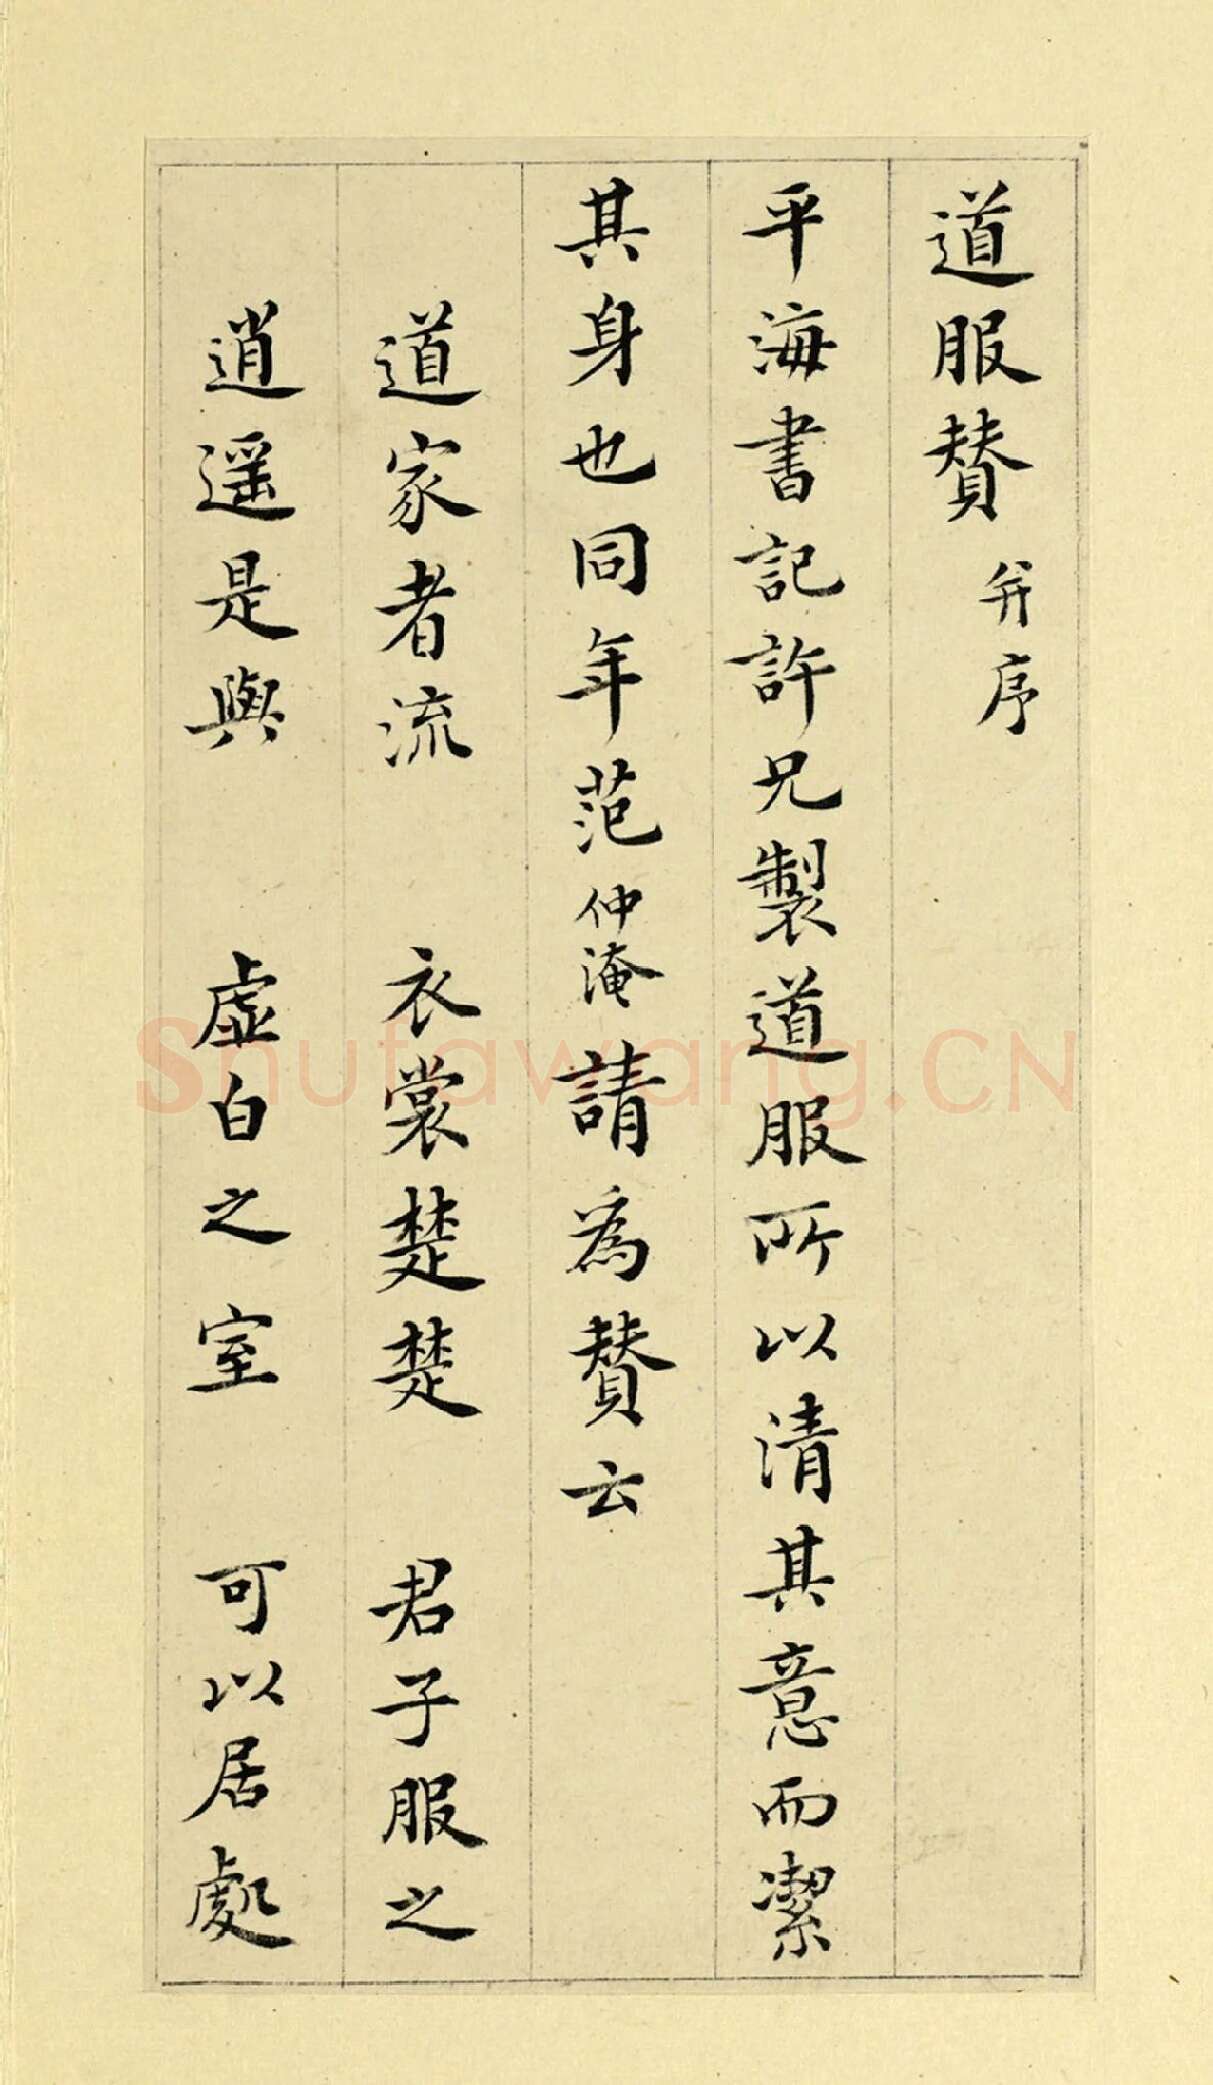 道服赞 并序
平海書記許兄製道服所以清其意而潔
其身也同年范仲淹請為赞云
道家者流 衣裳楚楚 君子服之
逍遥是與 虚白之室 可以居處
Shufawang.CN